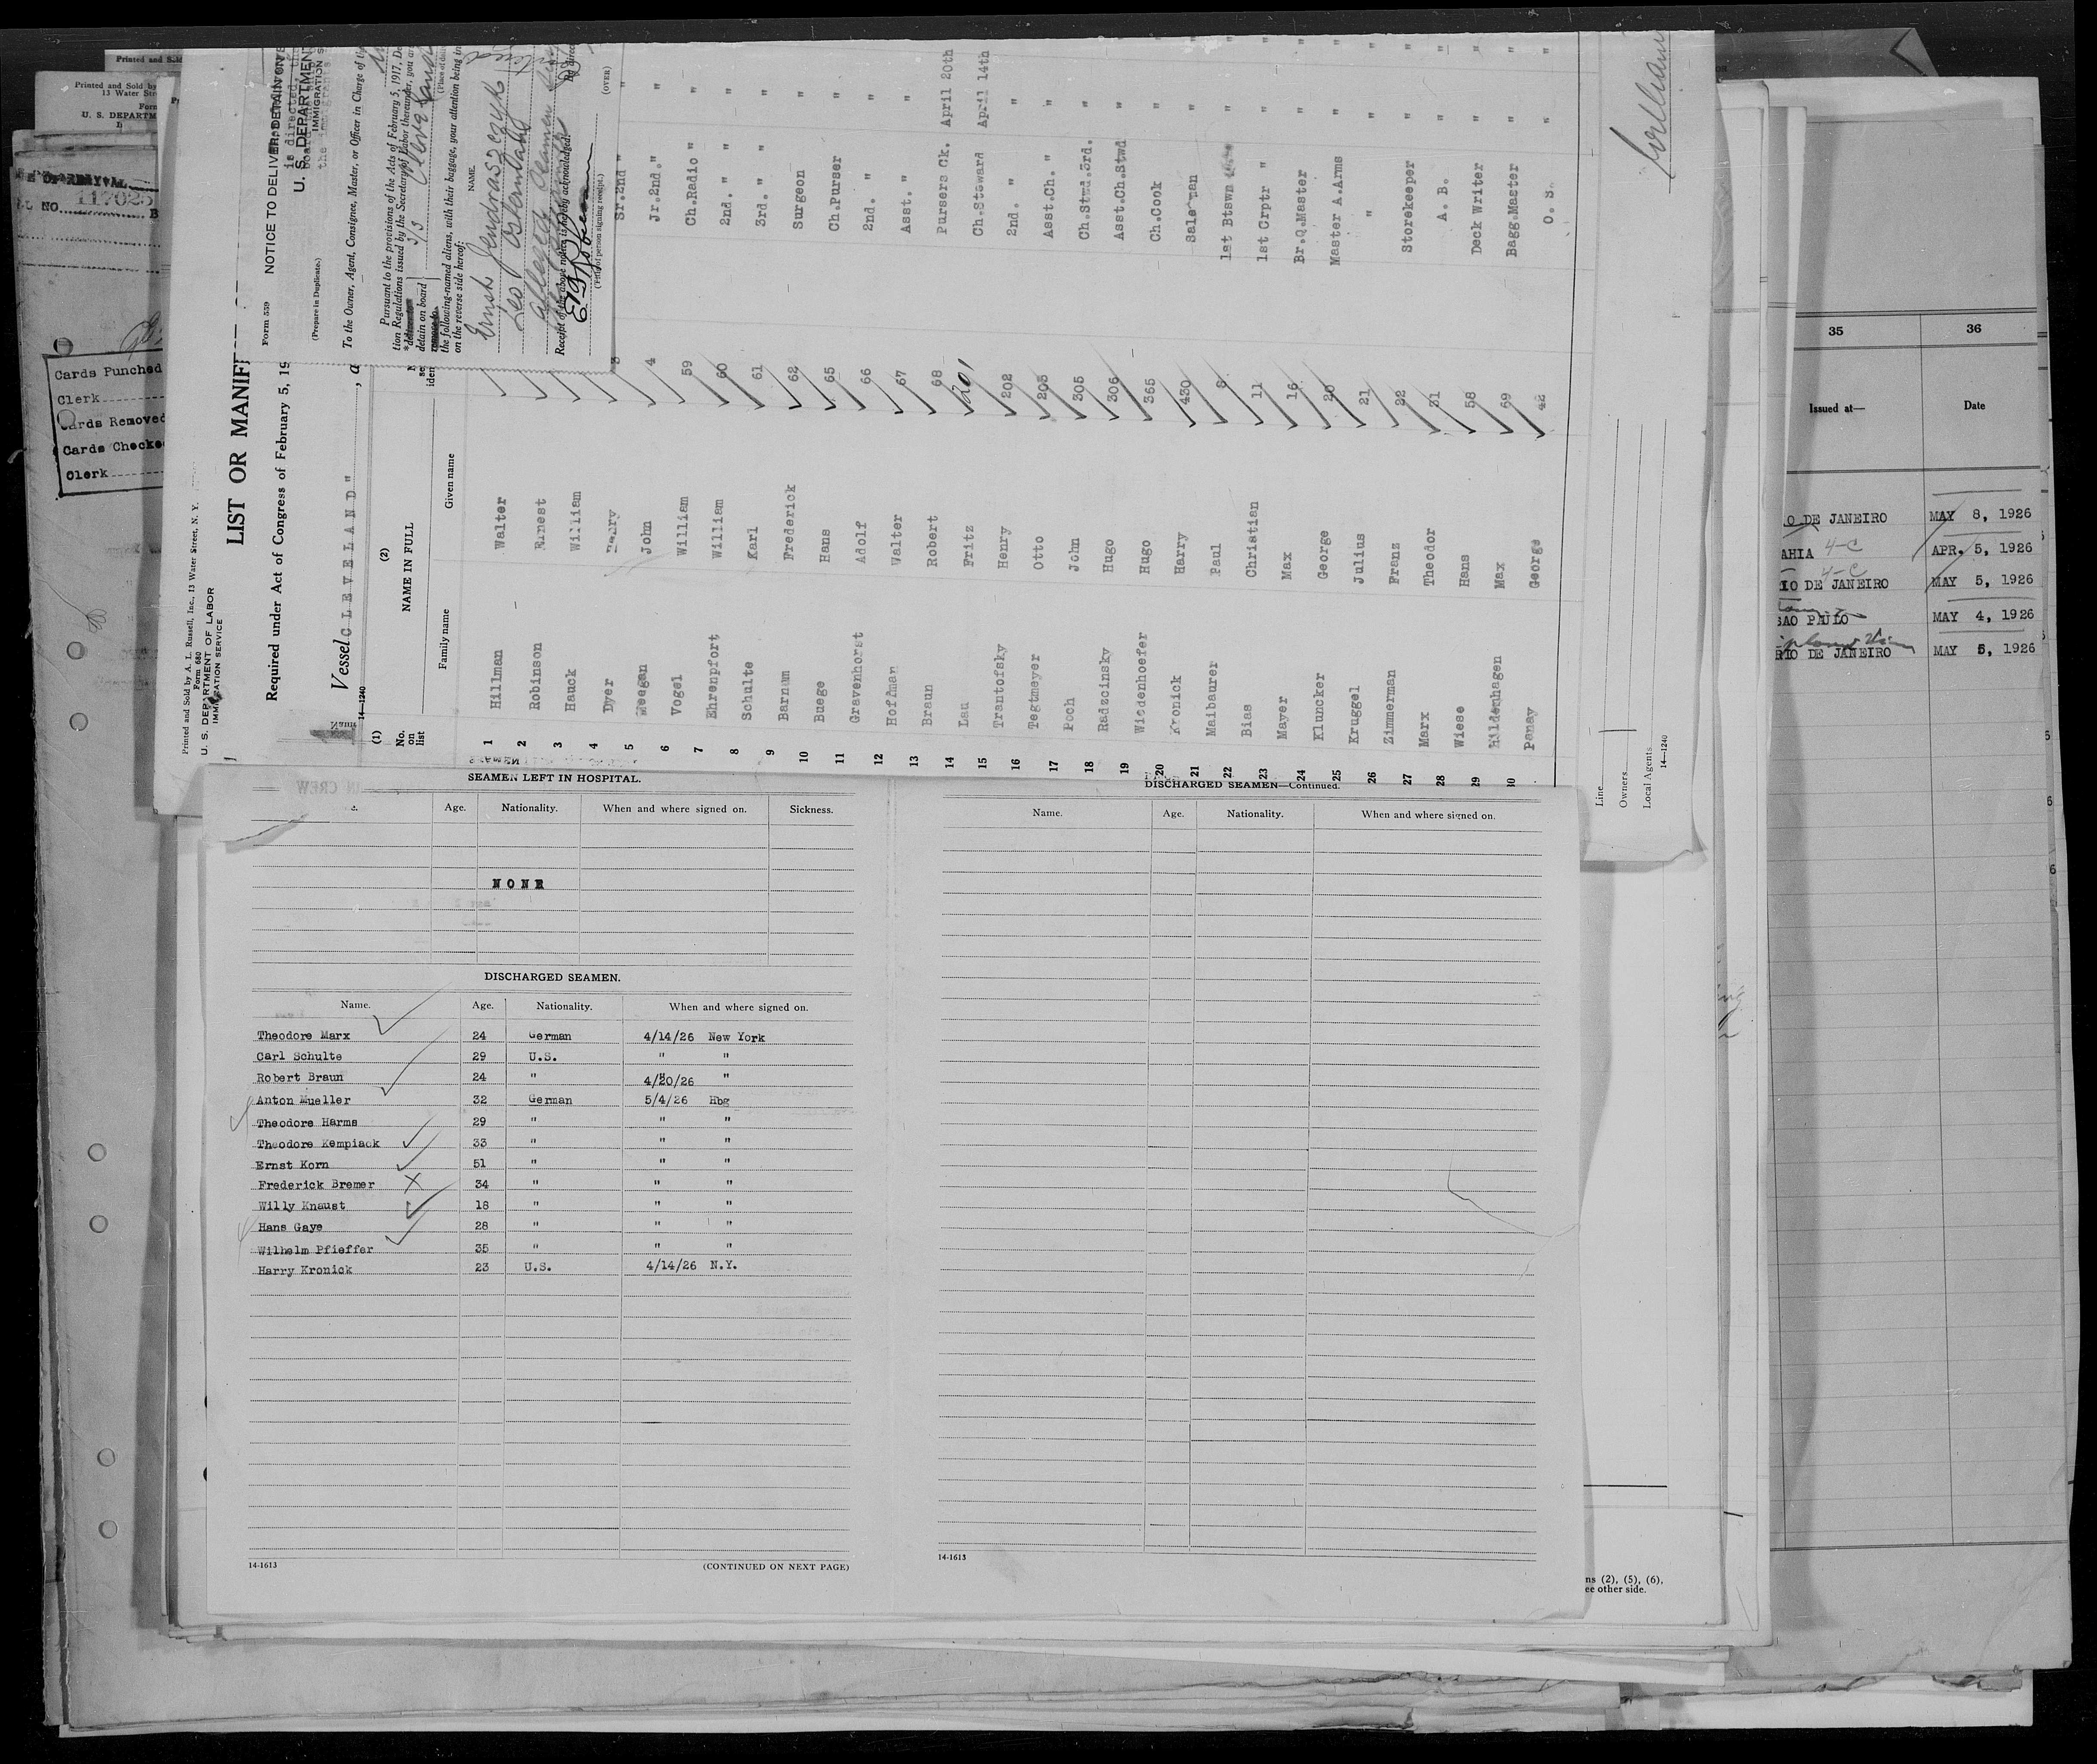 Printed and Sold by
13 Water Str
Form
U. S. DEPARTM
NO. 117025
Cards Punched
Clerk
Cards Removed
Cards Checked
Clerk
Printed and Sold by A. L. Russell, Inc., 13 Water Street, N. Y.
Form 680
U. S. DEPARTMENT OF LABOR
IMMIGRATION SERVICE
LIST OR MANIF
Required under Act of Congress of February 5, 19
Vessel CLEVELAND", a
14—1240
(1) (2)
No. on list
NAME IN FULL
Family name Given name
1 Hillman Walter
2 Robinson Ernest
3 Hauck William
4 Dyer Henry
5 Meegan John 3 Sr.2nd "
6 Vogel William 4 Jr.2nd." "
7 Ehrenpfort William 59 Ch.Radio " "
8 Schulte Karl 60 2nd. " "
9 Barnum Frederick 61 3rd. " "
10 Buege Hans 62 Surgeon "
11 Gravenhorst Adolf 65 Ch.Purser "
12 Hoffman Walter 66 2nd. " "
13 Braun Robert 67 Asst. " "
14 Lau Fritz 68 Pursers Ck. April 20th "
15 Trantofsky Henry 201 Ch.Steward April 14th "
16 Tegtmeyer Otto 202 2nd. " "
17 Poch John 203 Asst.Ch. " "
18 Radzcinsky Hugo 305 Ch.Stwd.3rd. "
19 Wiedenhoefer Hugo 306 Asst.Ch.Stwd "
20 Kronick Harry 365 Ch.Cook "
21 Maibaurer Paul 430 Salesman " "
22 Bias Christian 8 1st Btswn " "
23 Mayer Max 11 1st Crptr " " "
24 Kluncker George 16 Br.Q.Master " "
25 Kruggel Julius 20 Master A.Arms " "
26 Zimmerman Franz 21 " " "
27 Marx Theodor 22 Storekeeper " "
28 Wiese Hans 31 A. B. " "
29 Hildenhagen Max 58 Deck Writer " "
30 Panay George 69 Bagg.Master " "
42 O. S. " "
Line
Owners
Local Agents
14—1240
Form 539
NOTICE TO DELIVER, DETAIN ON
(Prepare in Duplicate.)
U. S. DEPARTMENT
IMMIGRATION S
To the Owner, Agent, Consignee, Master, or Officer in Charge of the
Pursuant to the provisions of the Acts of February 5, 1917, De
tion Regulations issued by the Secretary of Labor thereunder, you ar
detain on board S/S Cleveland
(Place of de
the following-named aliens, with their baggage, your attention being in
on the reverse side hereof:
NAME.
Ernst Jendraszezyk
Leo
Receipt of the above notice is hereby acknowledged:
(Title of person signing receipt.)
(OVER)
35 36
Issued at— Date
O DE JANEIRO MAY 8, 1926
AHIA 4-C APR. 5, 1926
4-C
IO DE JANEIRO MAY 5, 1926
SAO PAULO MAY 4, 1926
RIO DE JANEIRO MAY 5, 1926
SEAMEN LEFT IN HOSPITAL.
Age. Nationality. When and where signed on. Sickness.
NONE
DISCHARGED SEAMEN.
Name. Age. Nationality. When and where signed on.
Theodore Marx 24 German 4/14/26 New York
Carl Schulte 29 U.S. " "
Robert Braun 24 " 4/20/26 "
Anton Mueller 32 German 5/4/26 Hbg
Theodore Harms 29 " " "
Theodore Kempiack 33 " " "
Ernst Korn 51 " " "
Frederick Bremer 34 " " "
Willy Knaust 18 " " "
Hans Gaye 28 " " "
Wilhelm Pfieffer 35 " " "
Harry Kronick 23 U.S. 4/14/26 N.Y.
14-1613
(CONTINUED ON NEXT PAGE)
DISCHARGED SEAMEN—Continued.
Name. Age. Nationality. When and where signed on.
14-1613
ns (2), (5), (6),
ee other side.